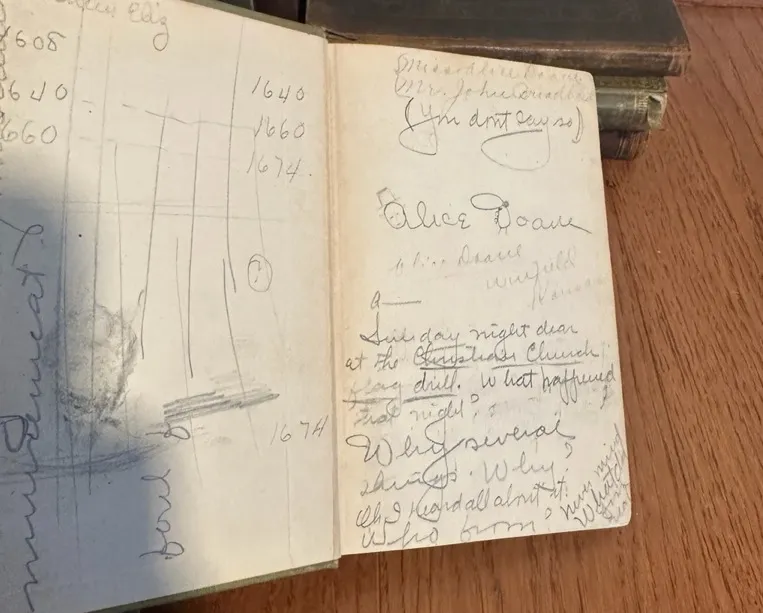 Eliz
1605
1640
1660
1640
1660
1674.
?
1674
Miss Alice Doane
Mr. John
(You don't say so)
Alice Doane
Alice Doane
Winfield
Kansas
a—
Sunday night dear
at the Christian Church
flag drill. What happened
that night?
Why several
things. Why?
Oh I heard all about it.
Who from?
never mind
What did
you